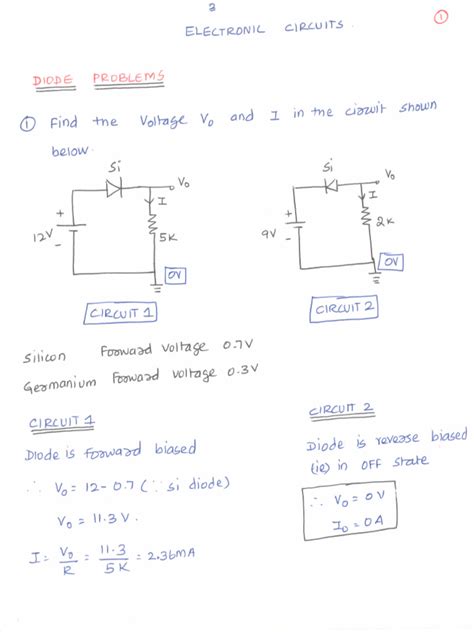 3
①
ELECTRONIC CIRCUITS.
DIODE PROBLEMS
① Find the Voltage V₀ and I in the circuit shown
below.
Si
V₀
I
+
12V
-
5K
0V
CIRCUIT 1
Si
V₀
I
+
9V
-
2K
0V
CIRCUIT 2
Silicon Forward Voltage 0.7V
Germanium Forward Voltage 0.3V
CIRCUIT 1
Diode is forward biased
∴ V₀ = 12 - 0.7 (∵ Si diode)
V₀ = 11.3 V.
I = V₀/R = 11.3/5K = 2.36mA
CIRCUIT 2
Diode is reverse biased
(ie) in OFF state
∴ V₀ = 0V
I₀ = 0A